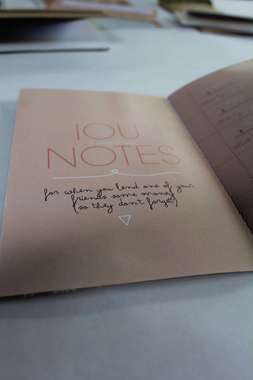 IOU
NOTES
for when you lend one of your
friends some money
(so they don't forget)